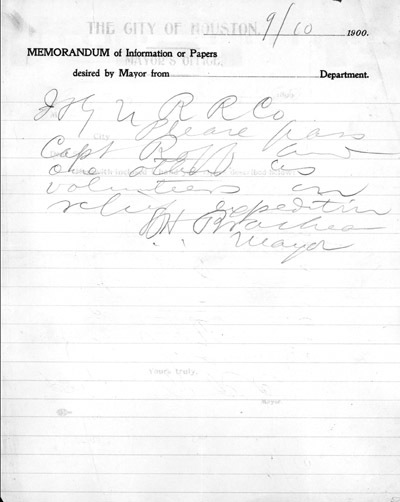 THE CITY OF HOUSTON.
9/10 1900.
MEMORANDUM of Information or Papers
MAYOR'S OFFICE.
desired by Mayor from Department.
I & G N R R Co
Please pass
City
Capt and
one other as
volunteers on
relief expedition
S H Brashear
Mayor
Yours truly,
Mayor